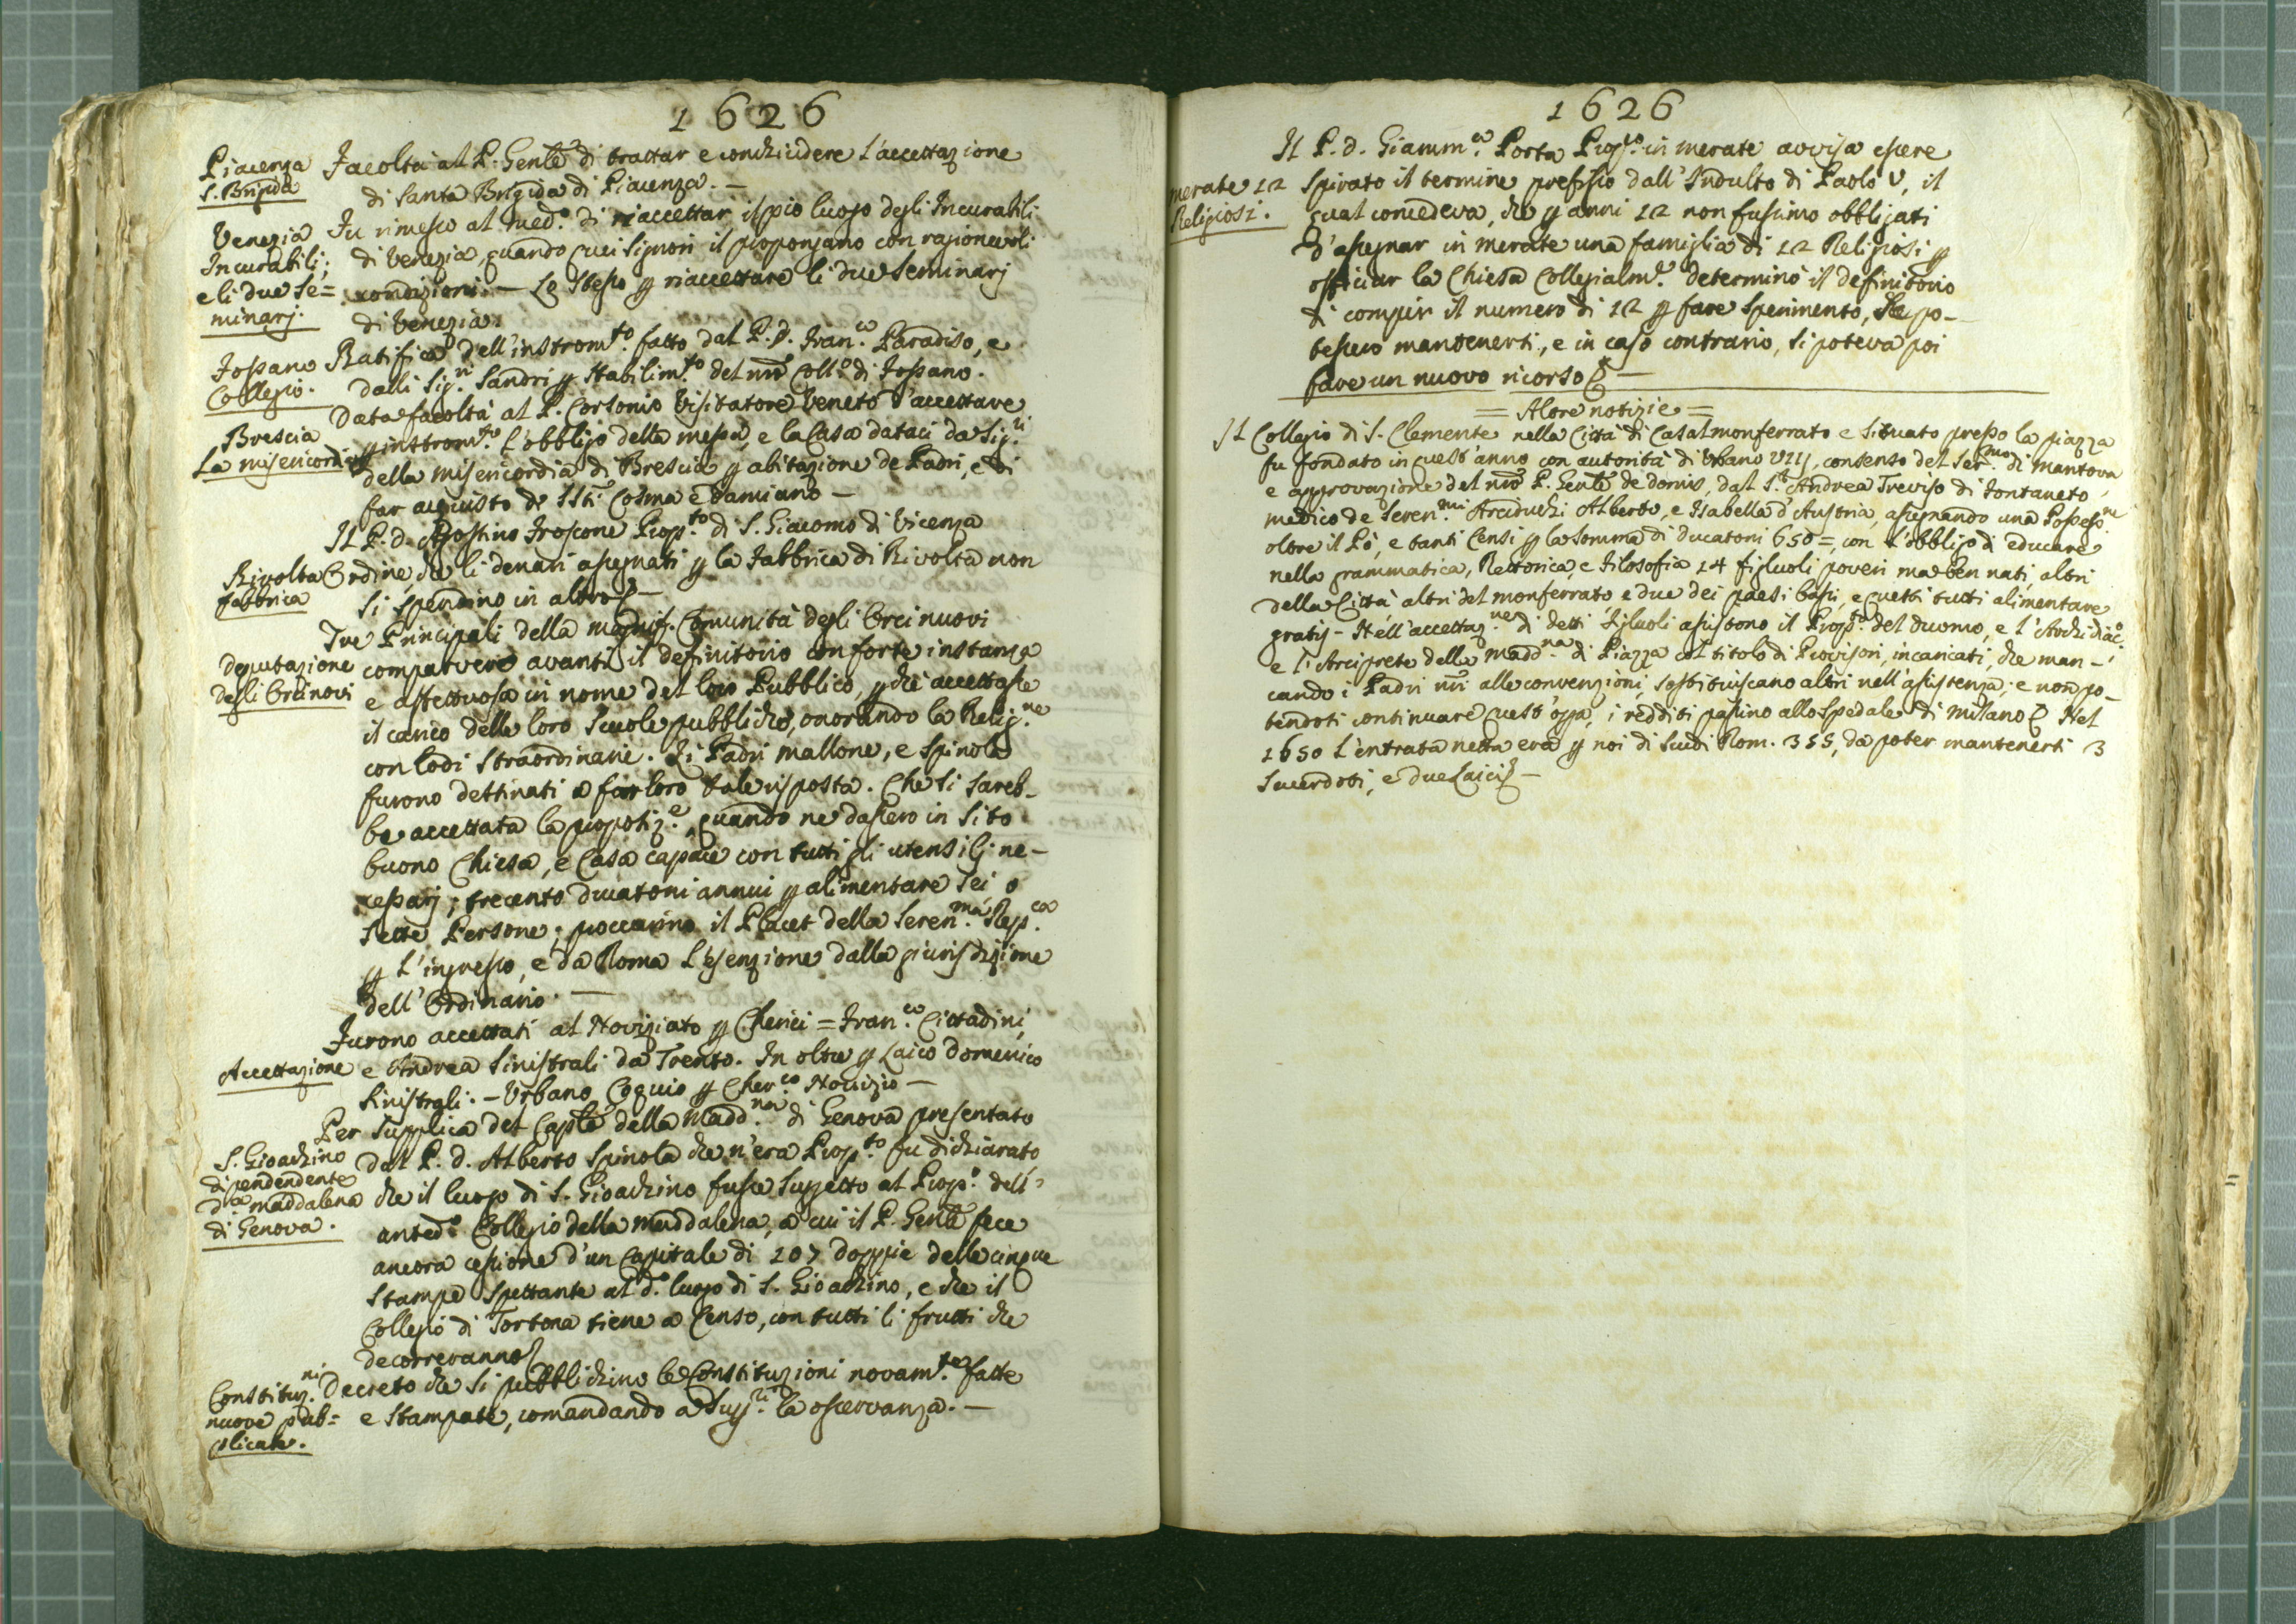 1626
Piacenza
S. Brigida
Facoltà al P. Genle di trattar e conchiudere l'accettazione
di Santa Brigida di Piacenza. —
Venezia
Incurabili;
e li due Se=
minarj.
Fu rimesso al med.o di riaccettar il pio luogo degli Incurabili
di Venezia, quando quei Signori il propongano con ragionevoli
condizioni. — Lo stesso p riaccettare li due Seminarj
di Venezia.
Fossano
Collegio.
Ratifica dell'instrom.to fatto dal P. D. Fran.co Paradiso, e
dalli Sig.ri Sandri p stabilim.to del nro Coll.o di Fossano.
Brescia
La misericordia
Data facoltà al P. Cortonio Visitatore Veneto d'accettare
p instrom.to l'obbligo della messa, e la Casa dataci da Sig.ri
della misericordia di Brescia p abitazione de Padri, e di
far acquisto de SSti. Cosma e Damiano —
Il P. d. Agostino Froscone Prop.to di S. Giacomo di Vicenza
Rivolta
fabbrica
Ordine che li denari assegnati p la Fabbrica di Rivolta non
si spendino in altro —
deputazione
degli Orcinovi
Tre Principali della magnif. Comunità degli Orcinuovi
comparvero avanti il definitorio con forte instanza
e affettuosa in nome del loro Pubblico, p che accettasse
il carico delle loro Scuole pubbliche, onorando la Relig.ne
con lodi straordinarie. Li Padri Mallone, e Spinola
furono destinati a far loro tale risposta. Che si sareb-
be accettata la propotiz.e, quando ne dassero in sito
buono Chiesa, e Casa capace con tutti gli utensilj ne-
cessarj; trecento ducatoni annui p alimentare sei o
sette Persone; proccurino il Placet della Seren.ma Rep.ca
p l'ingresso, e da Roma l'esenzione dalla giurisdizione
dell'Ordinario. —
Accettazione
Furono accettati al Noviziato p Cherici = Fran.co Cittadini,
e Andrea Sinistrali da Trento. In oltre p Laico Domenico
Sinistrali. — Urbano Coquio p Cher.co Novizio —
S. Gioachino
dipendendente
da maddalena
di Genova.
Per supplica del Caple della Madd.na di Genova presentato
dal P. d. Alberto Spinola che n'era Prop.to fu dichiarato
che il luogo di S. Gioachino fusse suggetto al Prop.o dell'
anted.o Collegio della Maddalena, a cui il P. Genle fece
ancora cessione d'un Capitale di 107 doppie delle cinque
stampe spettante al d.o luogo di S. Gioachino, e che il
Collegio di Tortona tiene a Censo, con tutti li frutti che
decorreranno
Constituz.ni
nuove pub=
plicate.
Decreto che si pubblichino le Constituzioni novam.te fatte
e stampate, comandando a Sup.ri la osservanza. —
1626
merate 12
Religiosi.
Il P. d. Giamm.a Porta Prop.to in merate avvisa essere
spirato il termine prefisso dall'Indulto di Paolo V, il
qual concedeva, che p anni 12 non fussimo obbligati
d'assegnar in merate una famiglia di 12 Religiosi p
officiar la Chiesa Collegialm.e determinò il definitorio
di compir il numero di 12 p fare sperimento, se po-
tessero mantenerti, e in caso contrario, si poteva poi
fare un nuovo ricorso —
= Altre notizie =
Il Collegio di S. Clemente nella Città di Casalmonferrato e situato presso la piazza
fu fondato in quest'anno con autorità di Urbano VIIJ, consenso del Ser.mo di Mantova
e approvazione del nro P. Genle de Domis, dal S.r Andrea Treviso di Fontaneto,
medico de Seren.mi Arciduchi Alberto, e Isabella d'Austria, assegnando una Possess.ne
oltre il Pò, e tanti Censi p la somma di ducatoni 650 =, con l'obbligo di educare
nella grammatica, Rettorica, e Filosofia 14 figluoli poveri ma ben nati, altri
della Città altri del monferrato e due dei paesi bassi, e questi tutti alimentare
gratis - Nell'accettaz.ne di detti Figluoli assistono il Prop.to del Duomo, e l'Archidiac.o
e l'Arciprete della Madd.na di Piazza col titolo di Provisori, incaricati, che man-
cando i Padri nri alle convenzioni, sostituiscano altri nell'assistenza; e non po-
tendoti continuare quest'opa, i redditi passino allo Spedale di Milano Nel
1650 l'entrata netta era p noi di Scudi Rom. 355, da poter mantenerti 3
Sacerdoti, e due Laici —